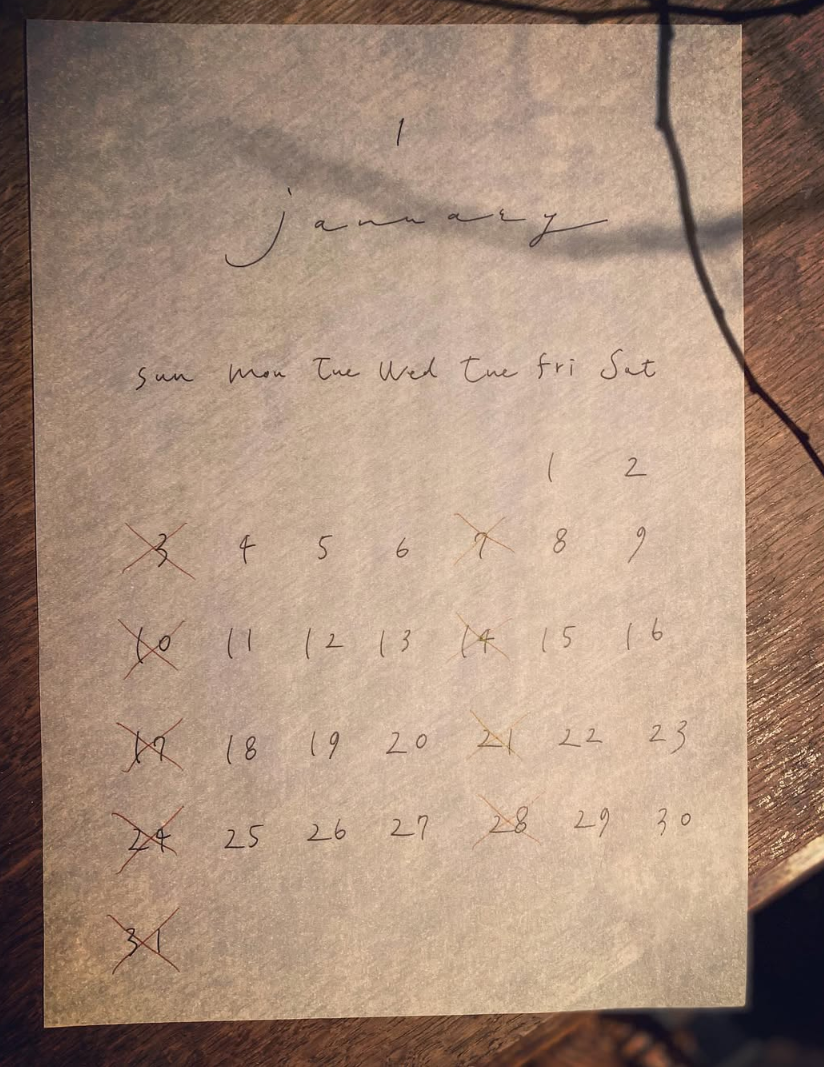 1
january
sun mon Tue Wed tue fri Sat
1 2
3 4 5 6 7 8 9
10 11 12 13 14 15 16
17 18 19 20 21 22 23
24 25 26 27 28 29 30
31